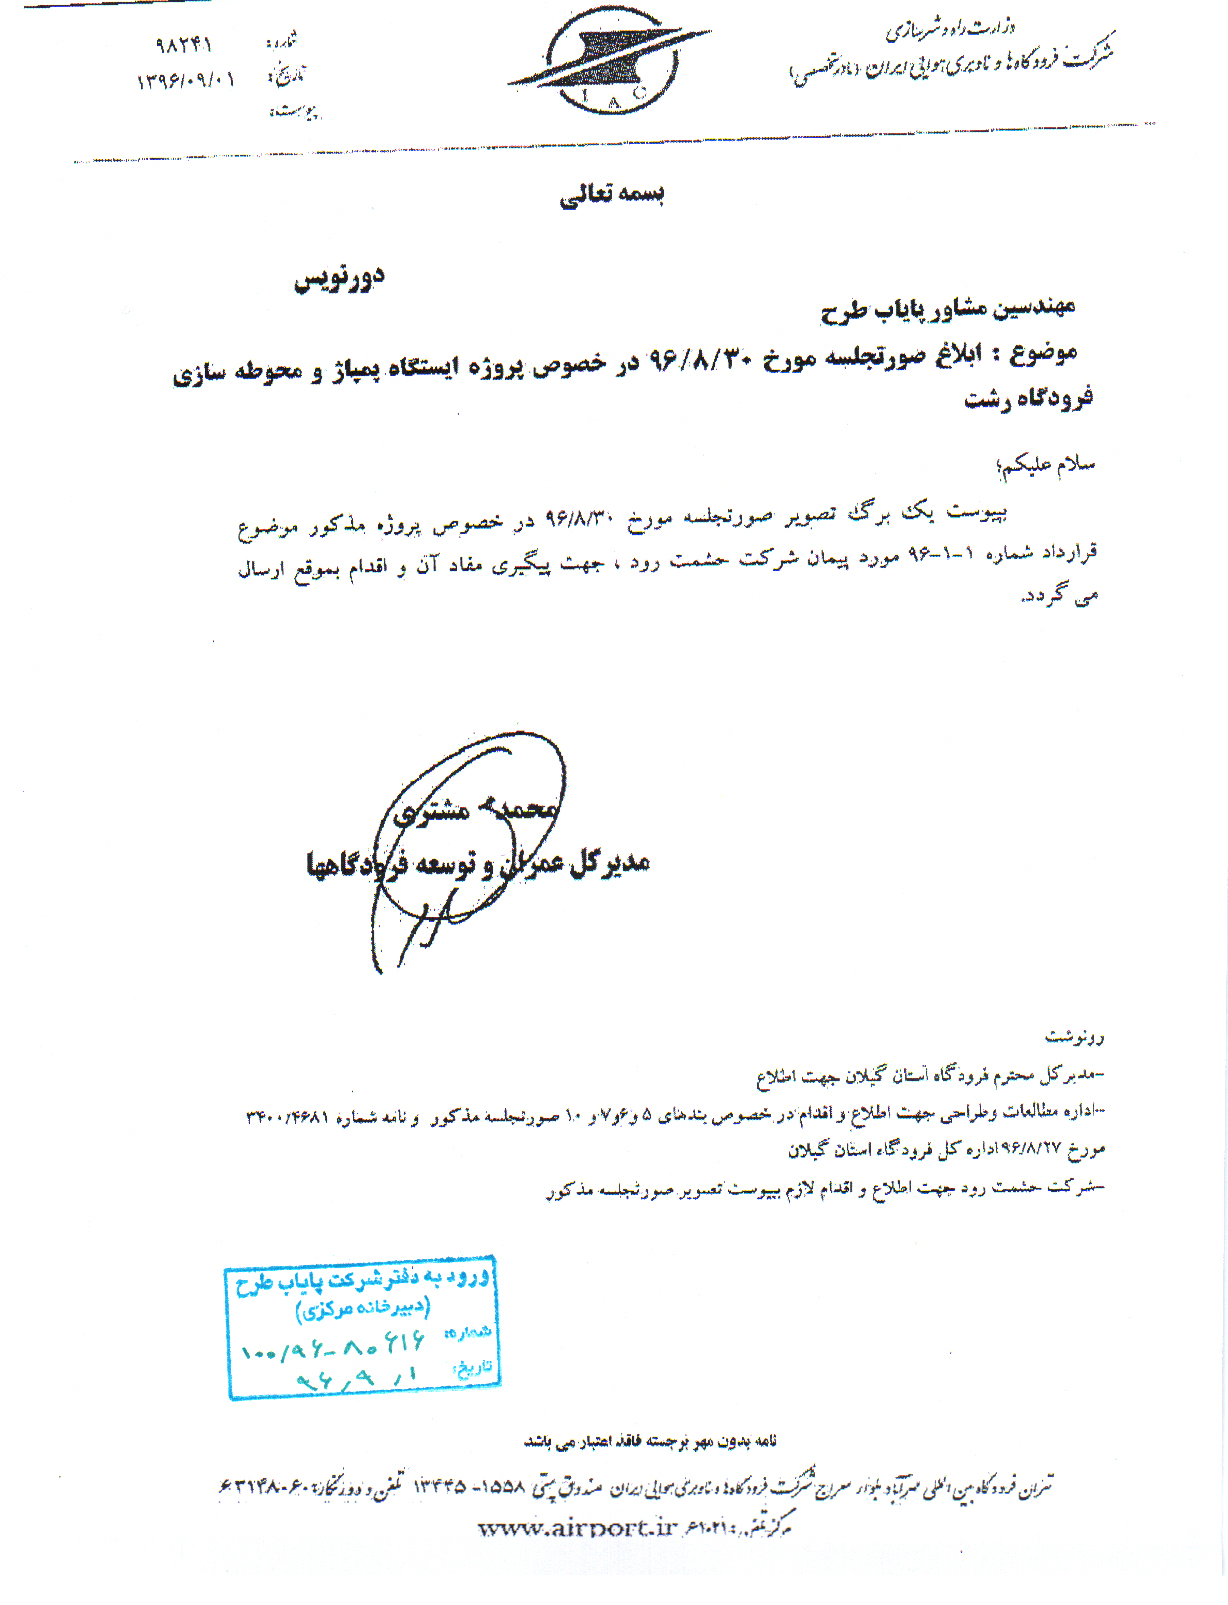 وزارت راه و شهرسازی
شرکت فرودگاه‌ها و ناوبری هوایی ایران (مادر تخصصی)
شماره: ۹۸۲۴۱
تاریخ: ۱۳۹۶/۰۹/۰۱
پیوست:
I A C
بسمه تعالی
دورنویس
مهندسین مشاور پایاب طرح
موضوع : ابلاغ صورتجلسه مورخ ۹۶/۸/۳۰ در خصوص پروژه ایستگاه پمپاژ و محوطه سازی
فرودگاه رشت
سلام علیکم؛
بپیوست یک برگ تصویر صورتجلسه مورخ ۹۶/۸/۳۰ در خصوص پروژه مذکور موضوع
قرارداد شماره ۱-۱-۹۶ مورد پیمان شرکت حشمت رود ، جهت پیگیری مفاد آن و اقدام بموقع ارسال
می گردد.
محمد مشتری
مدیرکل عمران و توسعه فرودگاهها
رونوشت
-مدیرکل محترم فرودگاه استان گیلان جهت اطلاع
-اداره مطالعات وطراحی جهت اطلاع و اقدام در خصوص بندهای ۵ و۶و۷و ۱۰ صورتجلسه مذکور و نامه شماره ۳۴۰۰/۴۶۸۱
مورخ ۹۶/۸/۲۷ اداره کل فرودگاه استان گیلان
-شرکت حشمت رود جهت اطلاع و اقدام لازم بپیوست تصویر صورتجلسه مذکور
ورود به دفتر شرکت پایاب طرح
(دبیرخانه مرکزی)
شماره: ۱۰۰/۹۶-۸۰۶۱۶
تاریخ: ۹۶/۹/۱
نامه بدون مهر برجسته فاقد اعتبار می باشد
تهران فرودگاه بین المللی مهرآباد بلوار معراج شرکت فرودگاه‌ها و ناوبری هوایی ایران صندوق پستی ۱۵۵۸-۱۳۴۴۵ تلفن و دورنگار: ۶۳۱۴۸۰۶۰
مرکز تلفن: ۶۱۰۲۱ www.airport.ir